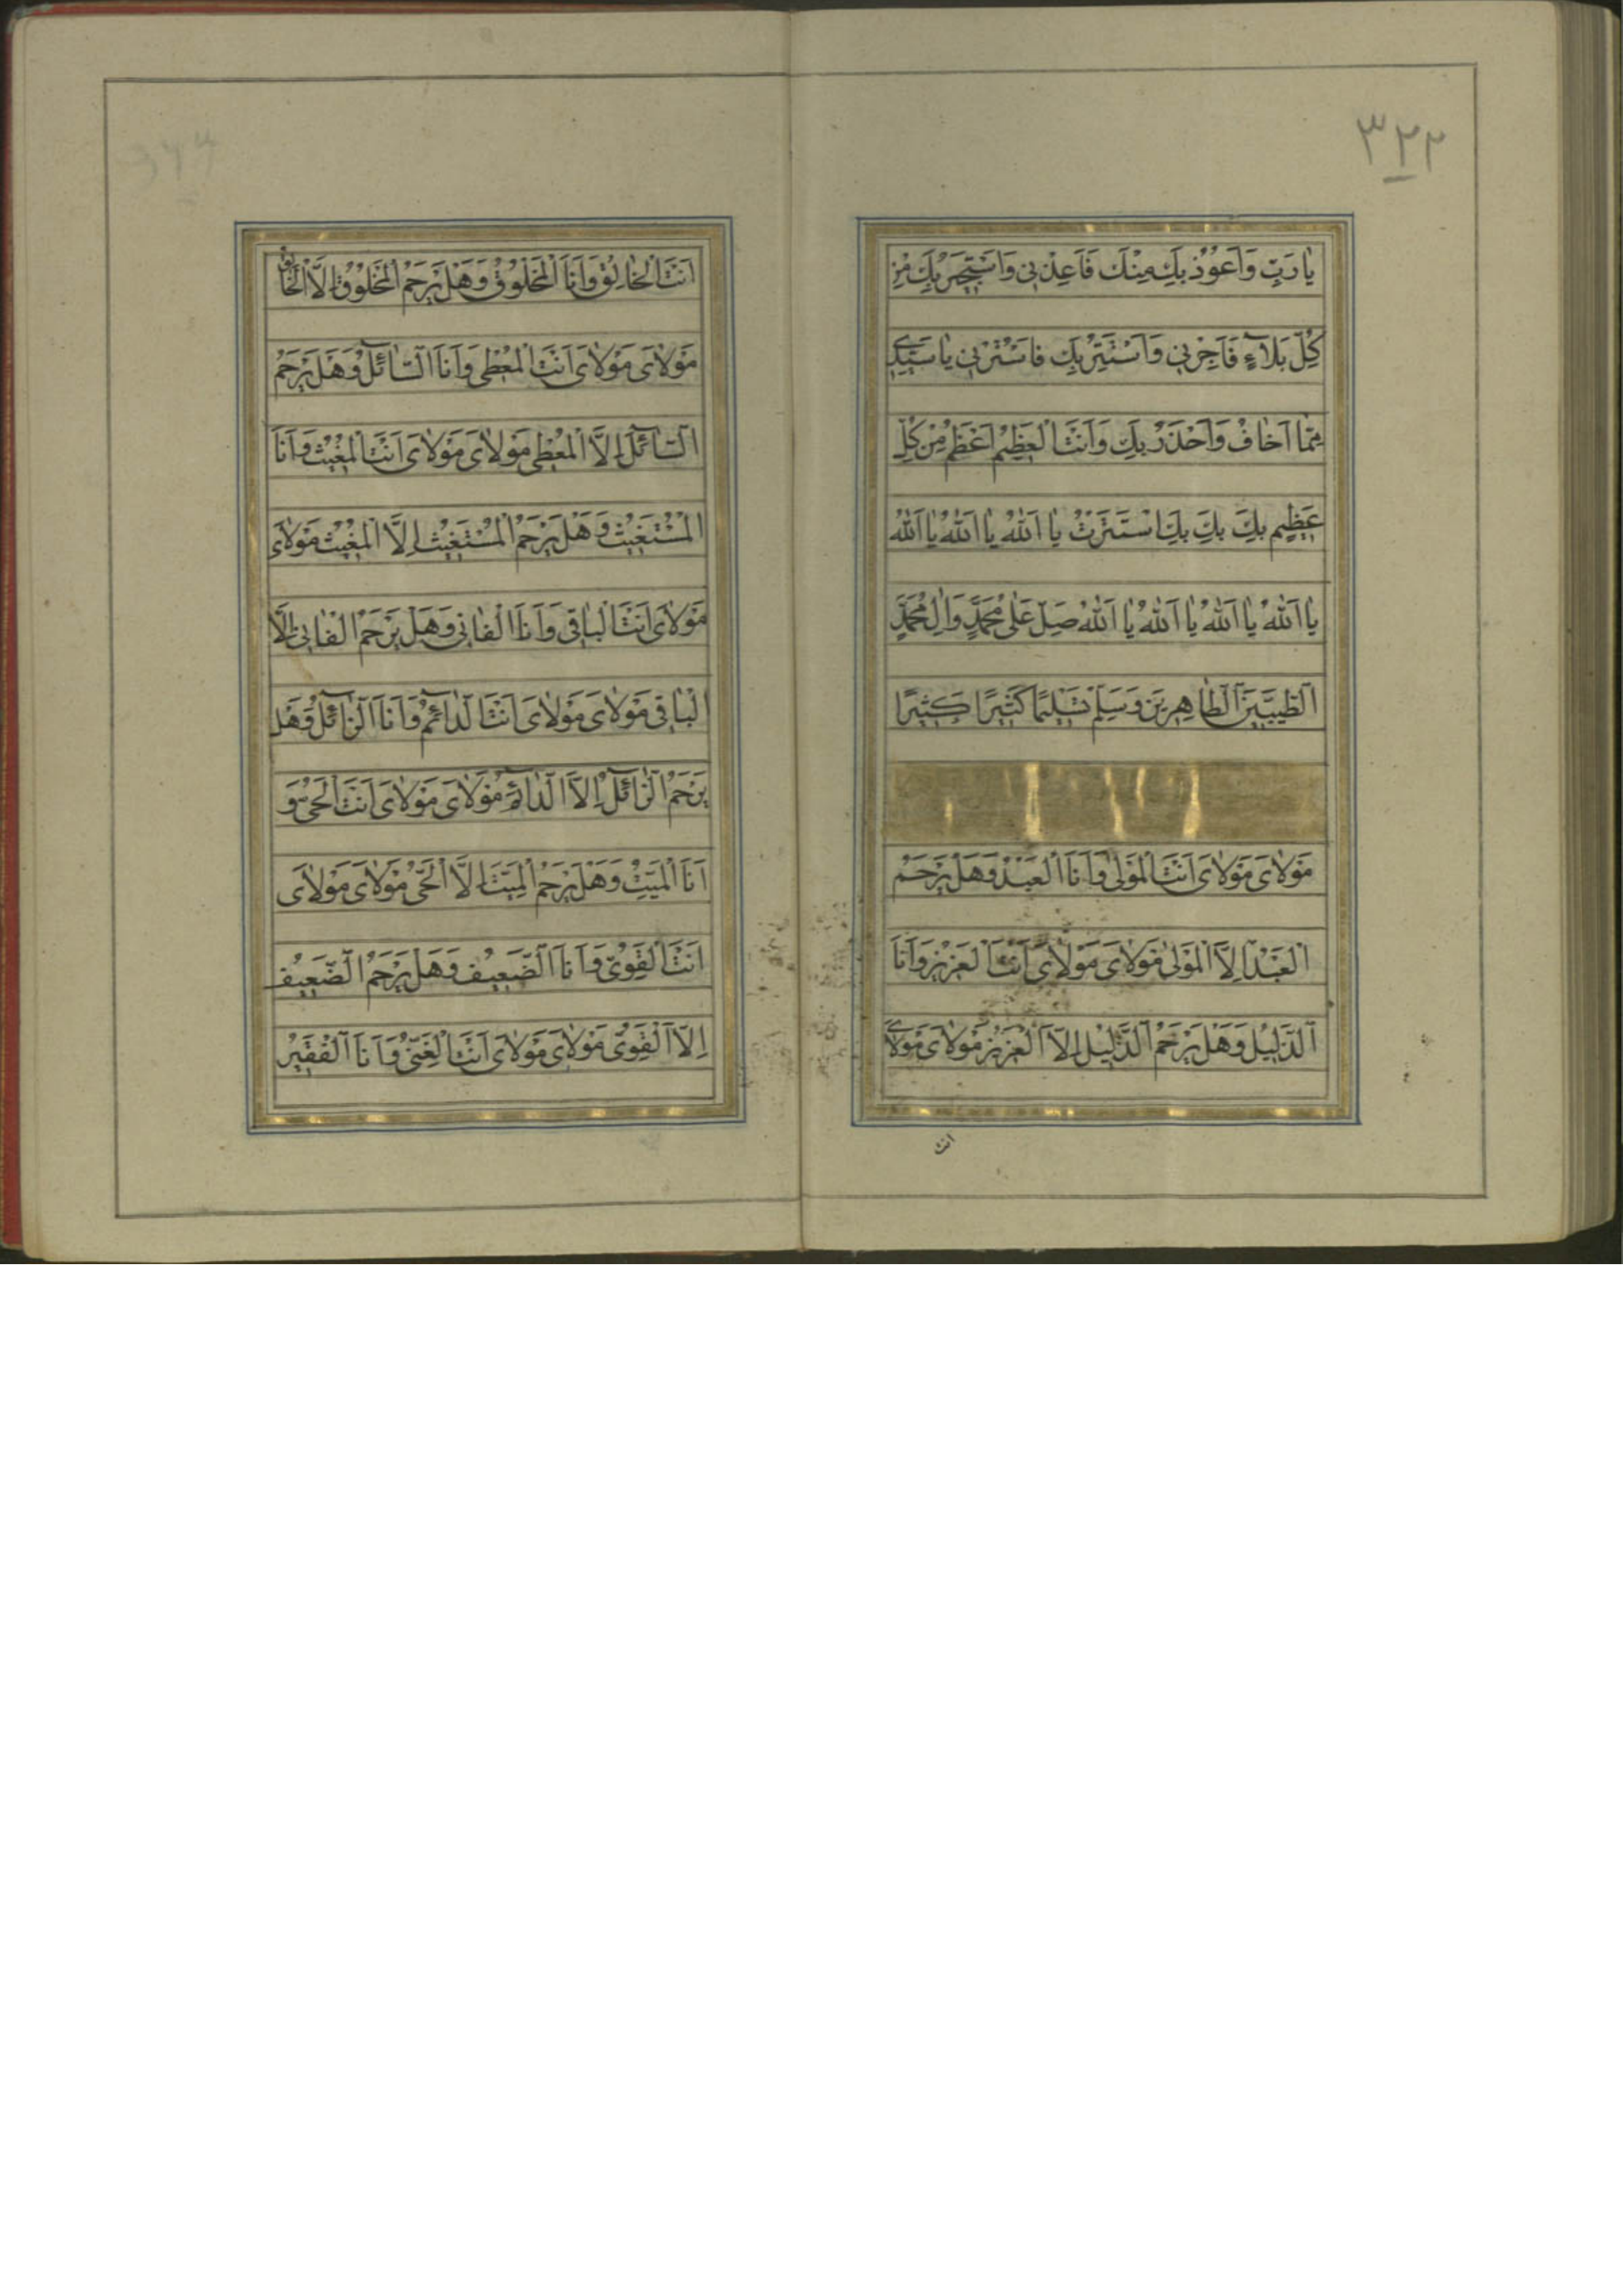 ٣٢٢
يٰا رَبِّ وَاَعُوُذُ بِكَ مِنْكَ فَاَعِذْنِي وَاَسْتَجِيرُ بِكَ مِنْ
كُلِّ بَلآءٍ فَاَجِرْنِي وَاَسْتَتِرُ بِكَ فَاسْتُرْنِي يٰا سَيِّدِي
مِمّٰا اَخٰافُ وَاَحْذَرُ بِكَ وَاَنْتَ الْعَظِيمُ اَعْظَمُ مِنْ كُلِّ
عَظِيمٍ بِكَ بِكَ بِكَ اسْتَتَرْتُ يٰا اَللّٰهُ يٰا اَللّٰهُ يٰا اَللّٰهُ
يٰا اَللّٰهُ يٰا اَللّٰهُ يٰا اَللّٰهُ يٰا اَللّٰهُ صَلِّ عَلٰى مُحَمَّدٍ وَاٰلِ مُحَمَّدٍ
الطَّيِّبِينَ الطّٰاهِرِينَ وَسَلِّمْ تَسْلِيمًا كَثِيرًا كَثِيرًا
مَوْلاٰىَ مَوْلاٰىَ اَنْتَ الْمَوْلٰى وَاَنَا الْعَبْدُ وَهَلْ يَرْحَمُ
الْعَبْدَ اِلَّا الْمَوْلٰى مَوْلاٰىَ مَوْلاٰىَ اَنْتَ الْعَزِيزُ وَاَنَا
الذَّلِيلُ وَهَلْ يَرْحَمُ الذَّلِيلَ اِلَّا الْعَزِيزُ مَوْلاٰىَ مَوْلاٰىَ
انت
اَنْتَ الْخٰالِقُ وَاَنَا الْمَخْلُوقُ وَهَلْ يَرْحَمُ الْمَخْلُوقَ اِلَّا الْخٰالِقُ
مَوْلاٰىَ مَوْلاٰىَ اَنْتَ الْمُعْطِى وَاَنَا السّٰآئِلُ وَهَلْ يَرْحَمُ
السّٰآئِلَ اِلَّا الْمُعْطِى مَوْلاٰىَ مَوْلاٰىَ اَنْتَ الْمُغِيثُ وَاَنَا
الْمُسْتَغِيثُ وَهَلْ يَرْحَمُ الْمُسْتَغِيثَ اِلَّا الْمُغِيثُ مَوْلاٰىَ
مَوْلاٰىَ اَنْتَ الْبٰاقِى وَاَنَا الْفٰانِى وَهَلْ يَرْحَمُ الْفٰانِىَ اِلَّا
الْبٰاقِى مَوْلاٰىَ مَوْلاٰىَ اَنْتَ الدّٰآئِمُ وَاَنَا الزّٰآئِلُ وَهَلْ
يَرْحَمُ الزّٰآئِلَ اِلَّا الدّٰآئِمُ مَوْلاٰىَ مَوْلاٰىَ اَنْتَ الْحَىُّ وَ
اَنَا الْمَيِّتُ وَهَلْ يَرْحَمُ الْمَيِّتَ اِلَّا الْحَىُّ مَوْلاٰىَ مَوْلاٰىَ
اَنْتَ الْقَوِىُّ وَاَنَا الضَّعِيفُ وَهَلْ يَرْحَمُ الضَّعِيفَ
اِلَّا الْقَوِىُّ مَوْلاٰىَ مَوْلاٰىَ اَنْتَ الْغَنِىُّ وَاَنَا الْفَقِيرُ